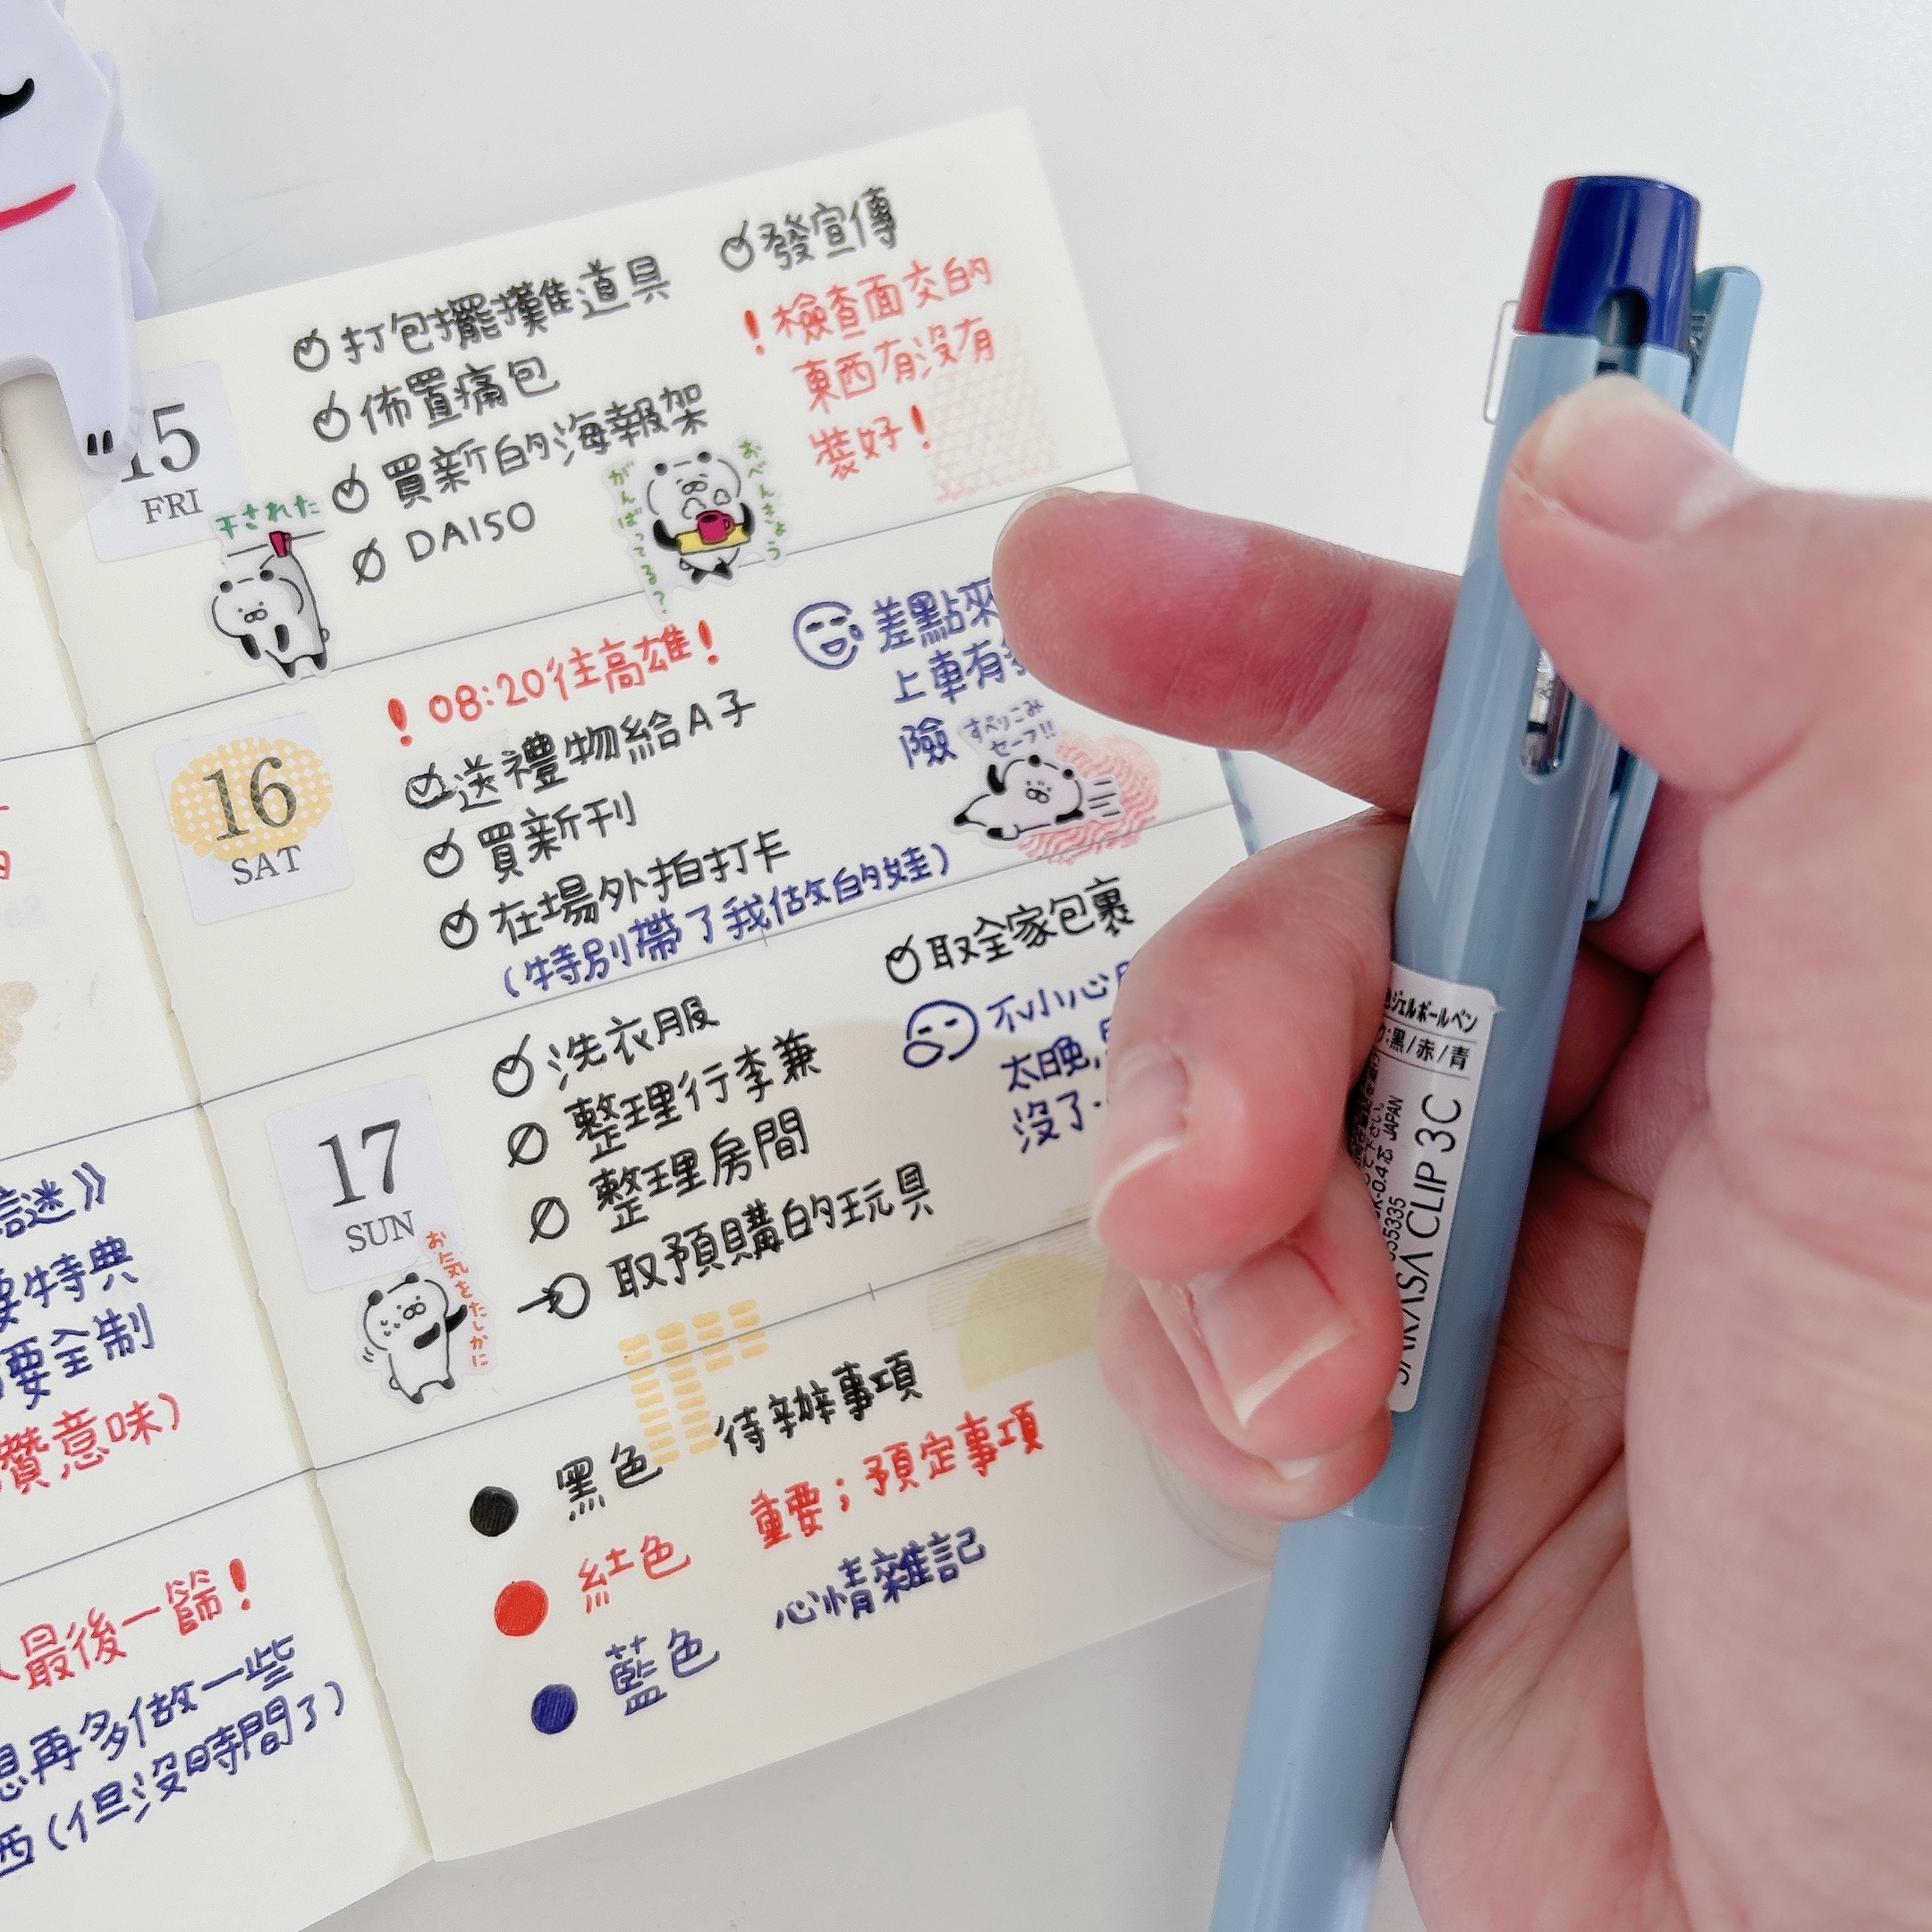 15
FRI
打包擺攤道具
佈置痛包
買新的海報架
DAISO
發宣傳
！檢查面交的
東西有沒有
裝好！
干された
がんばってる？
おべんきょう
16
SAT
！08:20往高雄！
送禮物給A子
買新刊
在場外拍打卡
（特別帶了我做的娃）
差點來
上車有
險
すべりこみ
セーフ!!
17
SUN
洗衣服
整理行李兼
整理房間
取預購的玩具
取全家包裹
不小心
太晚,
沒了
お気をたしかに
黑色 待辦事項
紅色 重要；預定事項
藍色 心情雜記
謎》
要特典
要全制
贊意味）
最後一篇！
想再多做一些
西（但沒時間了）
ジェルボールペン
:黒/赤/青
て下さい。
-0.4芯 JAPAN
55335
SARASA CLIP 3C